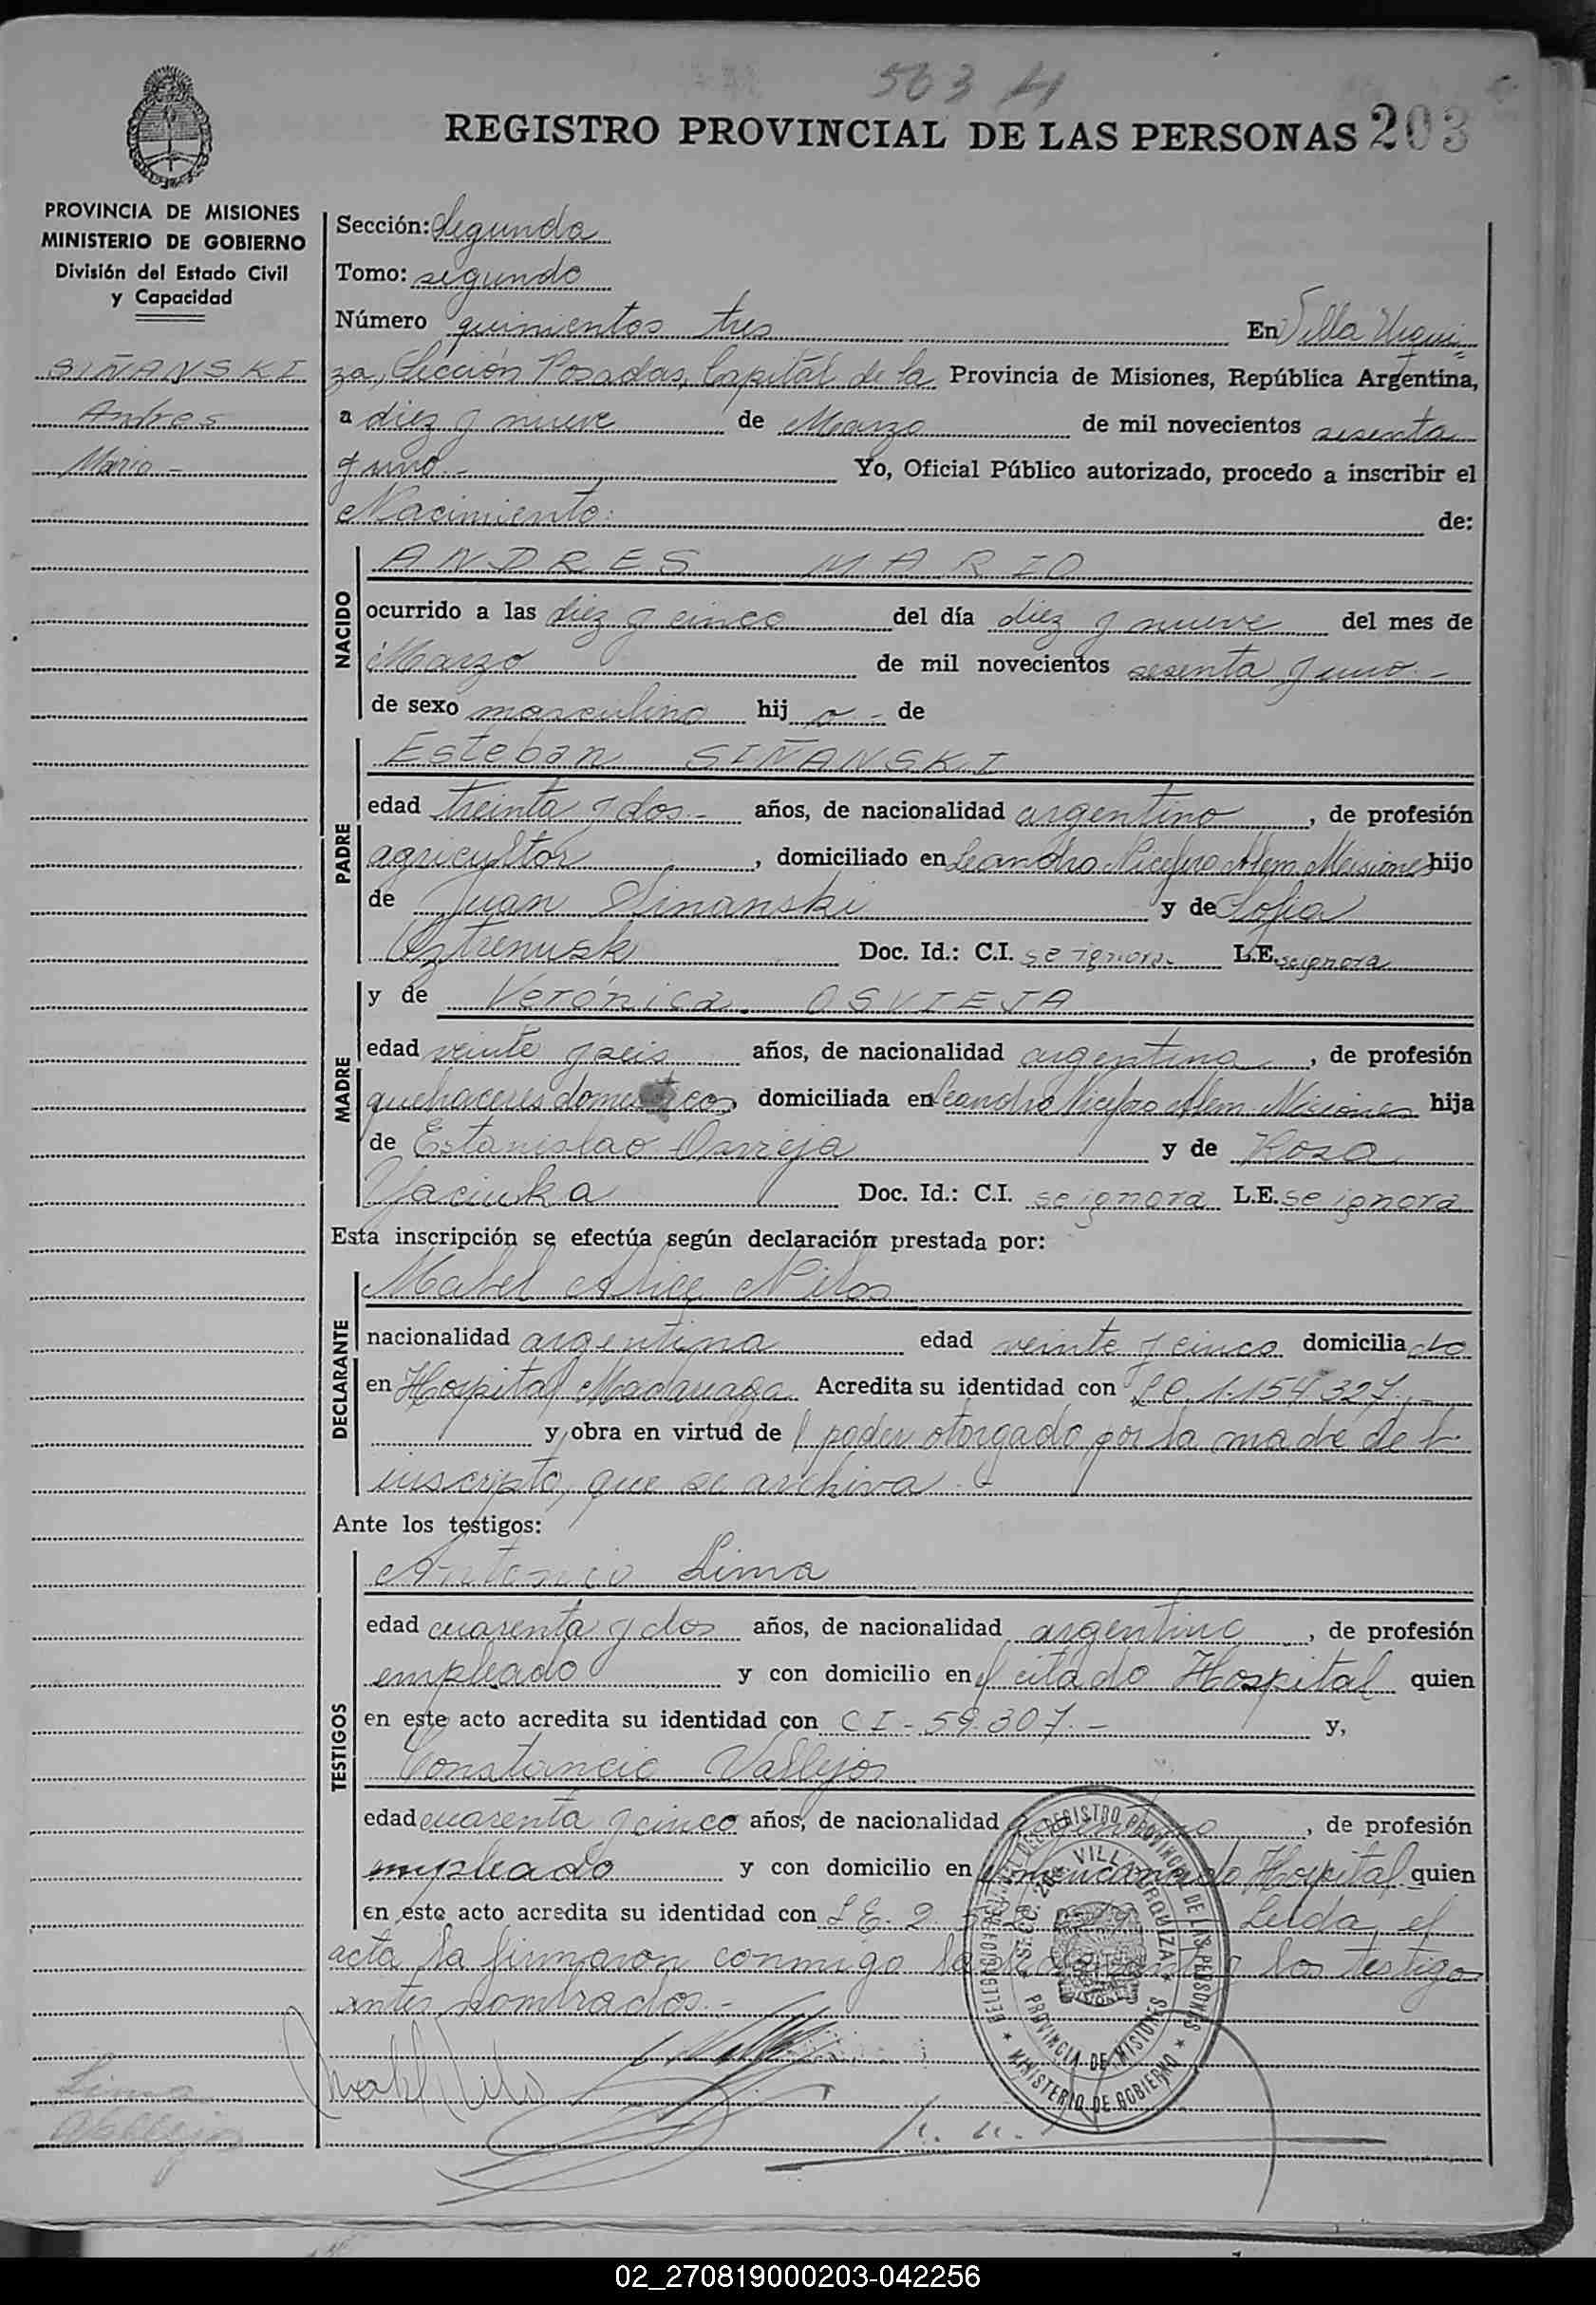 503 H
REGISTRO PROVINCIAL DE LAS PERSONAS 203
PROVINCIA DE MISIONES
MINISTERIO DE GOBIERNO
División del Estado Civil
y Capacidad
SIÑANSKI
Andres
Mario -
Sección: Segunda
Tomo: segundo
Número quinientos tres En Villa Urqui=
za, Sección Posadas, Capital de la Provincia de Misiones, República Argentina,
a diez y nueve de Marzo de mil novecientos sesenta
y uno.- Yo, Oficial Público autorizado, procedo a inscribir el
Nacimiento: de:
NACIDO
ANDRES MARIO
ocurrido a las diez y cinco del día diez y nueve del mes de
Marzo de mil novecientos sesenta y uno.-
de sexo masculino hij o - de
PADRE
Esteban SIÑANSKI
edad treinta y dos.- años, de nacionalidad argentino, de profesión
agricultor, domiciliado en Leandro Nicéforo Alem. Misiones hijo
de Juan Sinanski y de Sofia
Doc. Id.: C.I. se ignora. L.E. se ignora
MADRE
y de Verónica OSVIEJA
edad veinte y seis años, de nacionalidad argentina, de profesión
quehaceres domesticos, domiciliada en Leandro Niceforo Alem. Misiones hija
de Estanislao Osvieja y de Rosa
Yaciuska Doc. Id.: C.I. se ignora L.E. se ignora
Esta inscripción se efectúa según declaración prestada por:
DECLARANTE
Mabel Alice Nilos
nacionalidad argentina edad veinte y cinco domicilia do
en Hospital Madariaga. Acredita su identidad con 1.154.327.-
y obra en virtud de l poder otorgado por la madre del
inscripto, que se archiva.-
Ante los testigos:
TESTIGOS
Antonio Lima
edad cuarenta y dos años, de nacionalidad argentino, de profesión
empleado y con domicilio en el citado Hospital quien
en este acto acredita su identidad con C I - 59.307.- y,
Constancio Vallejos
edad cuarenta y cinco años, de nacionalidad argentino, de profesión
empleado y con domicilio en el mencionado Hospital quien
en este acto acredita su identidad con L E. 2. Leida el
acta la firmaron conmigo la declarante y los testigos
antes nombrados.-
DELEGACION DEL REGISTRO PROVINCIAL DE LAS PERSONAS
SECC. 2da. VILLA URQUIZA
PROVINCIA DE MISIONES
MINISTERIO DE GOBIERNO
Lima
Vallejos
02_270819000203-042256